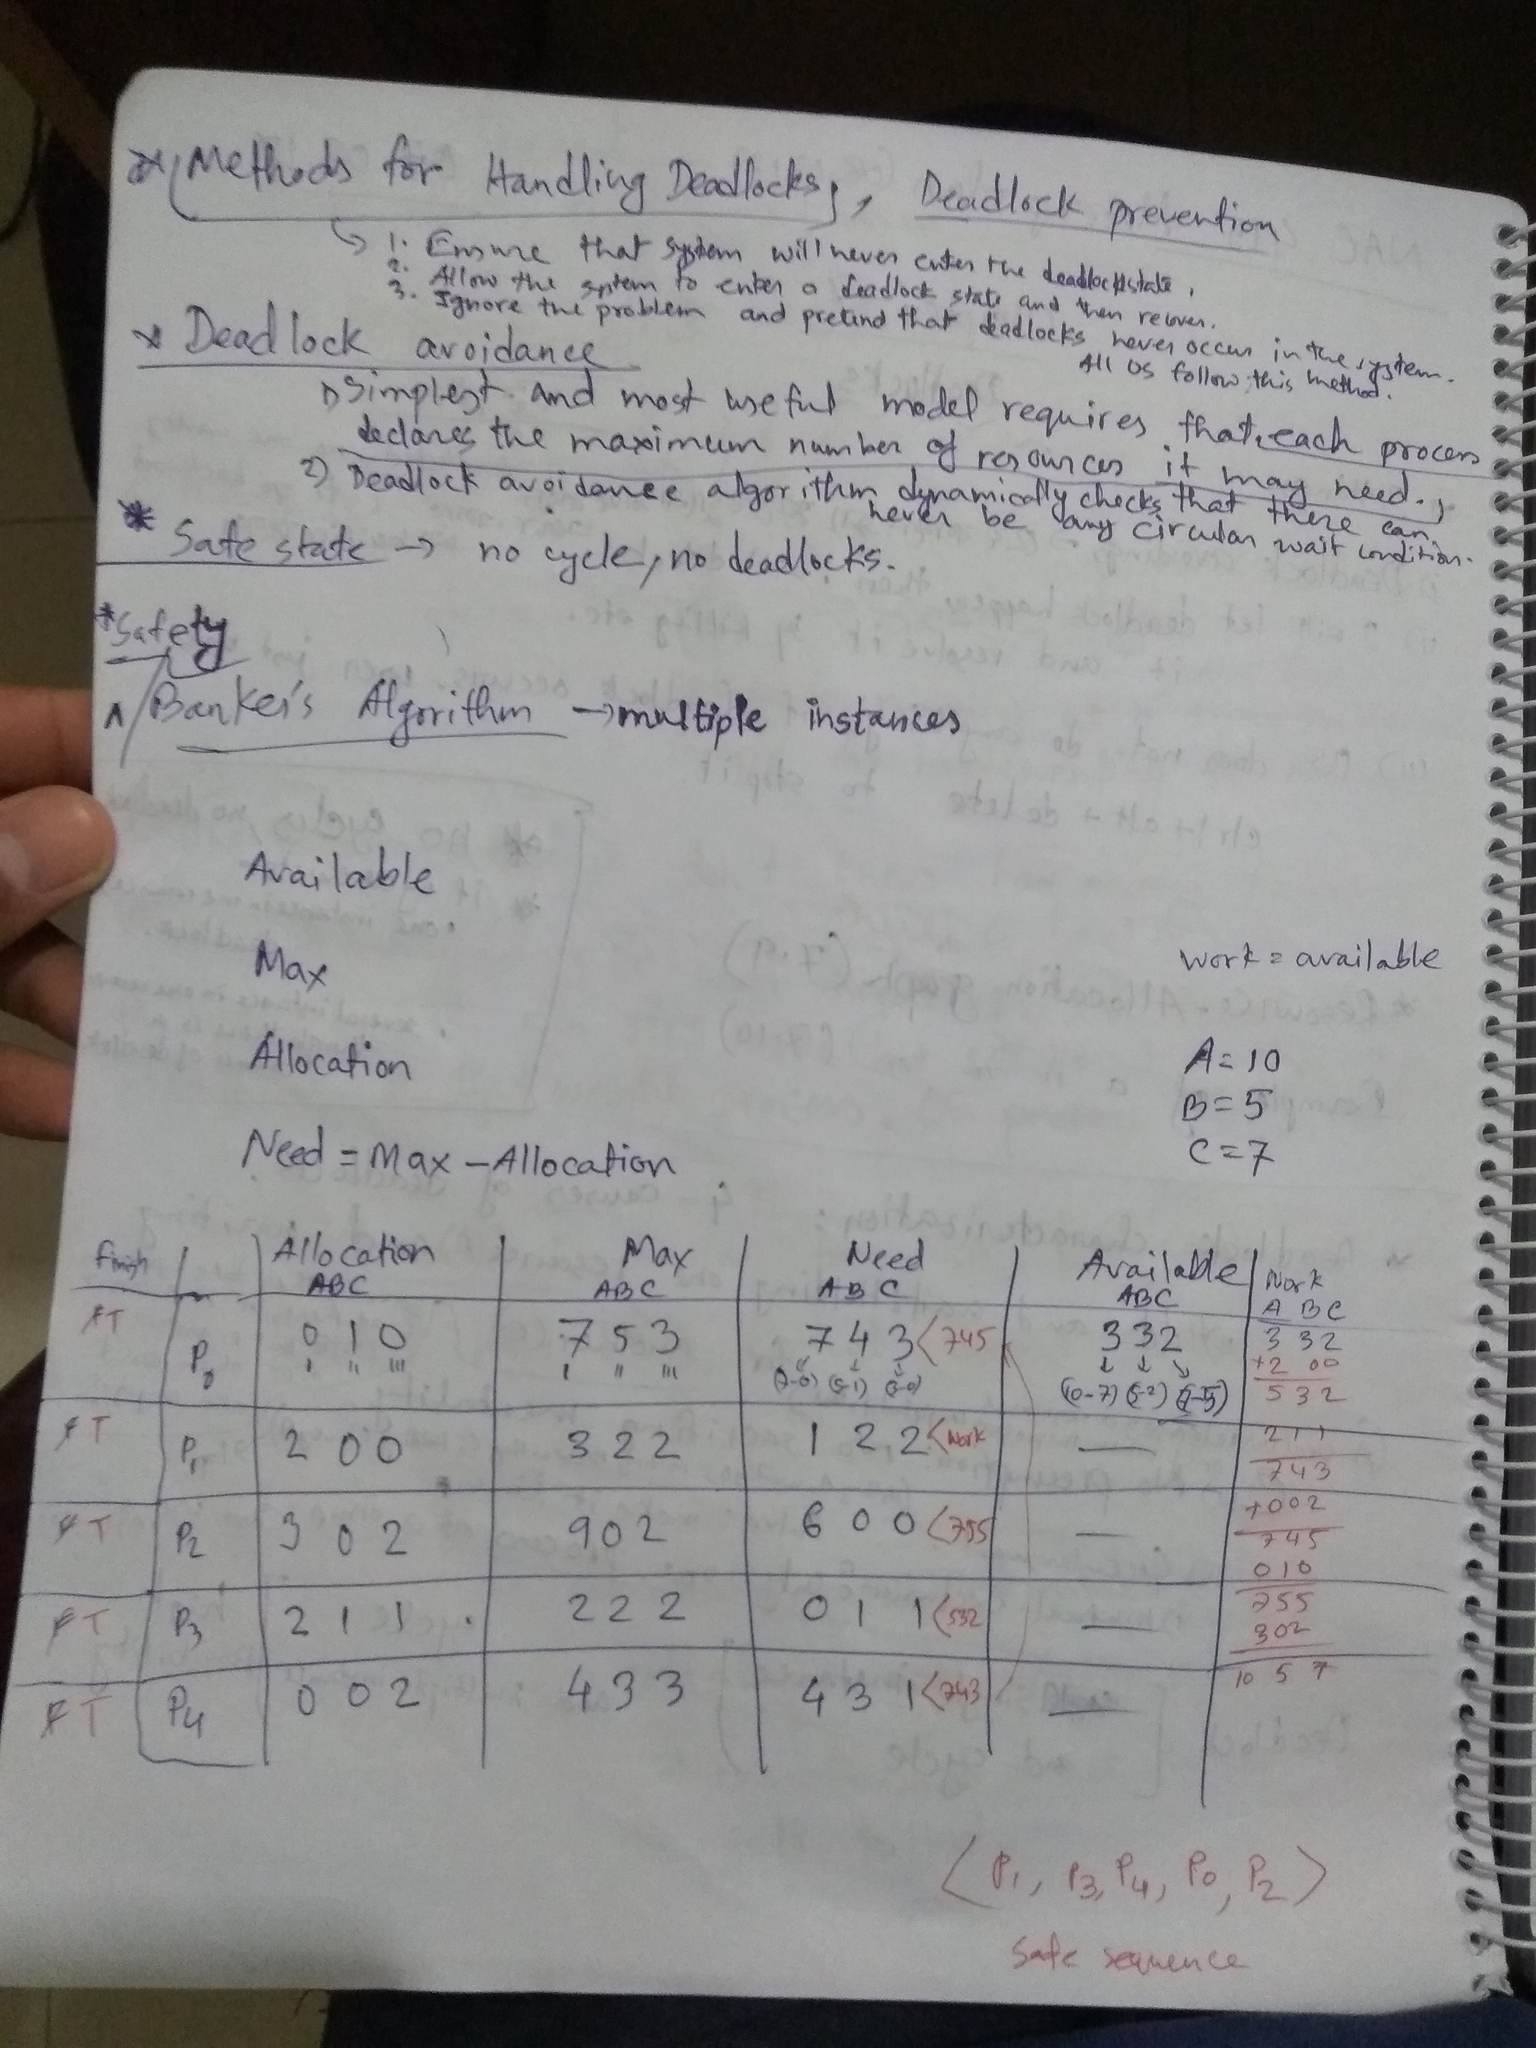 Methods for Handling Deadlocks, Deadlock prevention
1. Ensure that system will never enter the deadlock state.
2. Allow the system to enter a deadlock state and then recover.
3. Ignore the problem and pretend that deadlocks never occur in the system.
All OS follow this method.
* Deadlock avoidance
1) Simplest and most useful model requires that each process
declares the maximum number of resources it may need.,
2) Deadlock avoidance algorithm dynamically checks that there can
never be any circular wait condition.
* Safe state → no cycle, no deadlocks.
* Safety
Banker's Algorithm → multiple instances
Available
Max
work = available
Allocation
A = 10
B = 5
C = 7
Need = Max - Allocation
Finish Allocation Max Need Available Work
ABC ABC ABC ABC A BC
F T P0 0 1 0 7 5 3 7 4 3 < 745 3 3 2 3 3 2
(7-0) (5-1) (3-0) (10-7) (5-2) (7-5) +2 00
5 3 2
F T P1 2 0 0 3 2 2 1 2 2 < work — 2 1 1
7 4 3
F T P2 3 0 2 9 0 2 6 0 0 < 755 — +0 0 2
7 4 5
0 1 0
F T P3 2 1 1 2 2 2 0 1 1 < 532 — 7 5 5
3 0 2
F T P4 0 0 2 4 3 3 4 3 1 < 743 — 10 5 7
< P1, P3, P4, P0, P2 >
Safe sequence